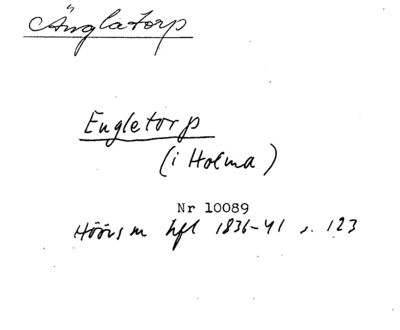 Änglatorp
Engletorp
(i Holma)
Nr 10089
Höörs m hfl 1836-41 s. 123